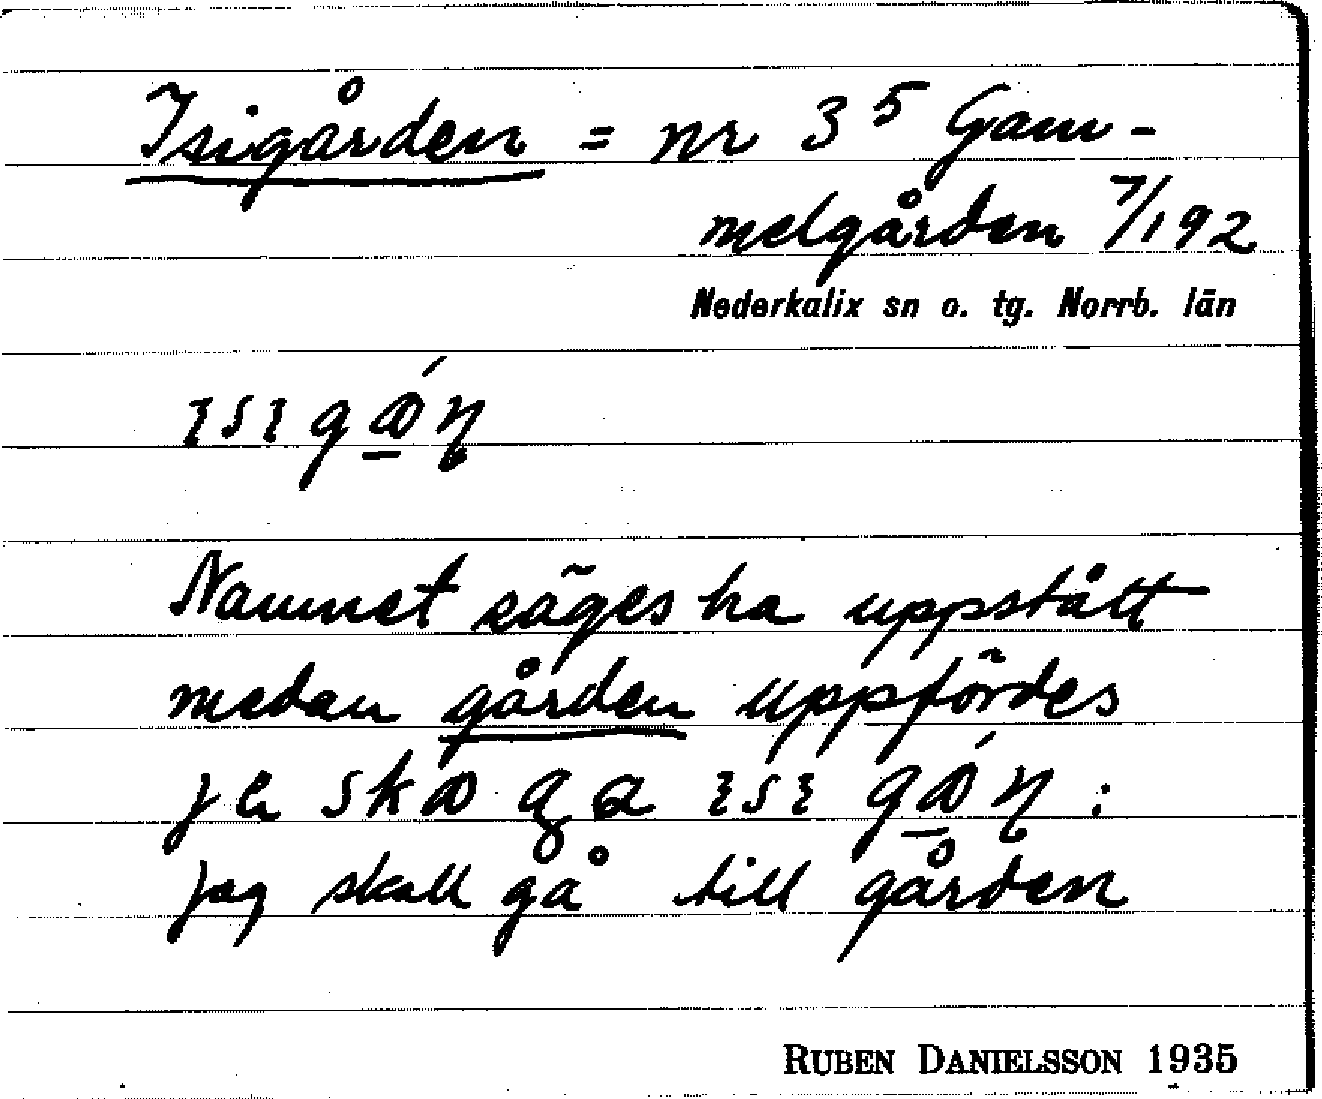 Isigården = nr 3⁵ Gam-
melgården 7/192
Nederkalix sn o. tg. Norrb. län
ısı gǻn
Namnet säges ha uppstått
medan gården uppfördes
ısı
Jag skall gå till gården
RUBEN DANIELSSON 1935